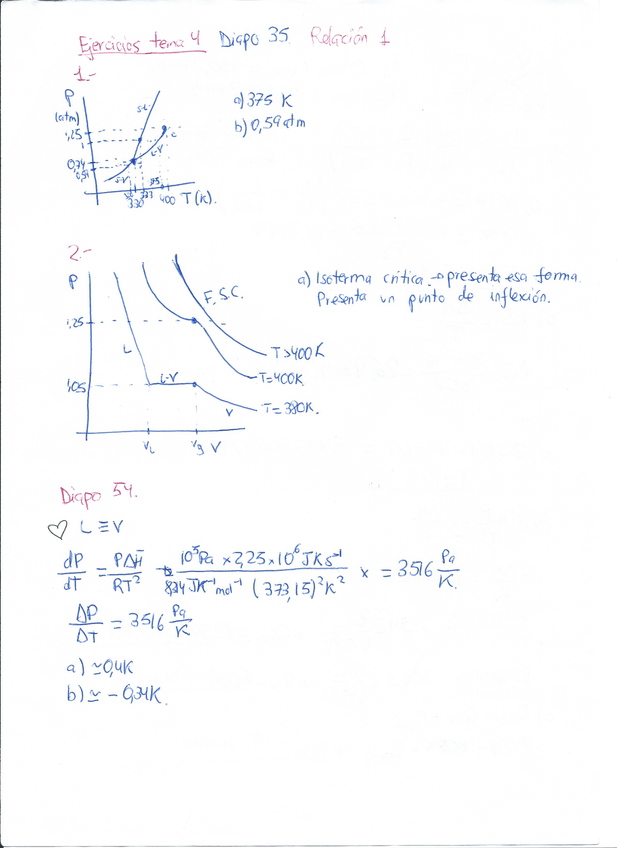 Ejercicios tema 4 Diapo 35 Relación 1
1.-
P
(atm)
1,25
1
0,74
0,59
S-L
L-V
S-V
C
330
373
400 T(K).
a) 375 K
b) 0,59 atm
2.-
P
1,25
1,05
L
L-V
V
F.S.C.
T>400K
T=400K
T=380K.
VL Vg V
a) Isoterma crítica → presenta esa forma.
Presenta un punto de inflexión.
Diapo 54.
♡ L≡V
dP/dT = PΔH̄/RT² = 10⁵Pa × 2,25 × 10⁶ JKs⁻¹ / 8,34 JK⁻¹mol⁻¹ (373,15)²K² × = 3516 Pa/K.
ΔP/ΔT = 3516 Pa/K
a) ≃ 0,4K
b) ≃ - 0,34K.